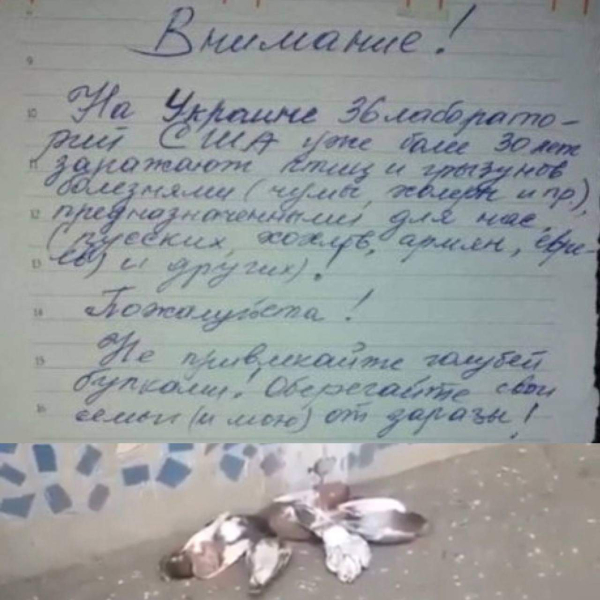 Внимание!
9
10 На Украине 36 лаборато-
рий США уже более 30 лет
11 заражают птиц и грызунов
болезнями (чумы, холеры и пр),
12 предназначенными для нас,
(русских, хохлов, армян, евре-
13 ев) и других).
14 Пожалуйста!
15 Не привлекайте голубей
булками! Оберегайте свои
16 семьи (и мою) от заразы!